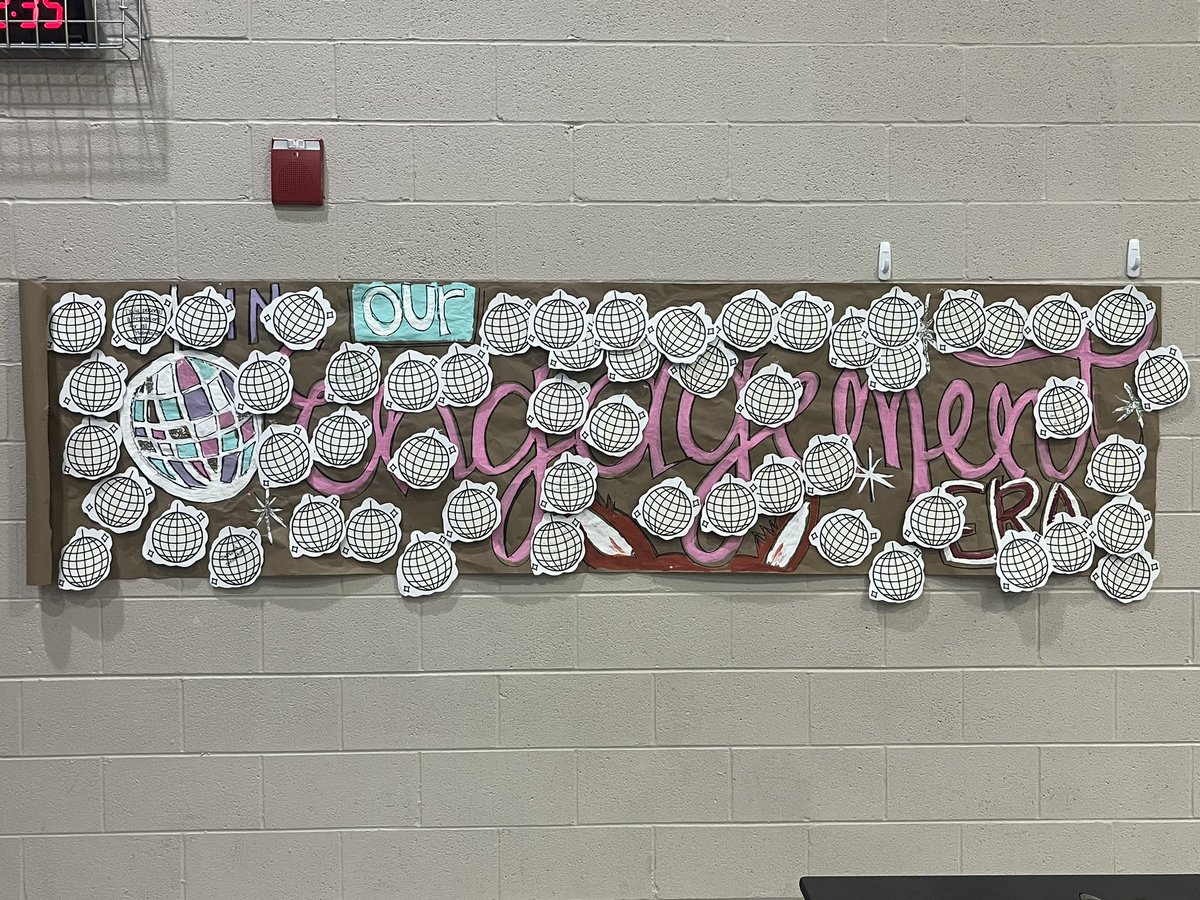 :35
IN our
engagement
ERA